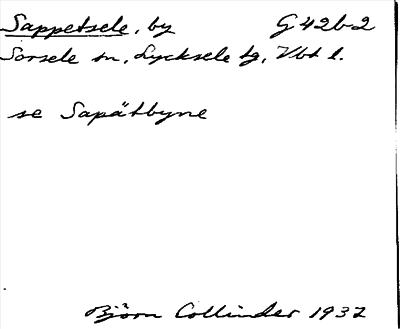 Sappetsele, by G42b2
Sorsele sn, Lycksele tg, Vbt l.
se Sapätbyne
Björn Collinder 1932